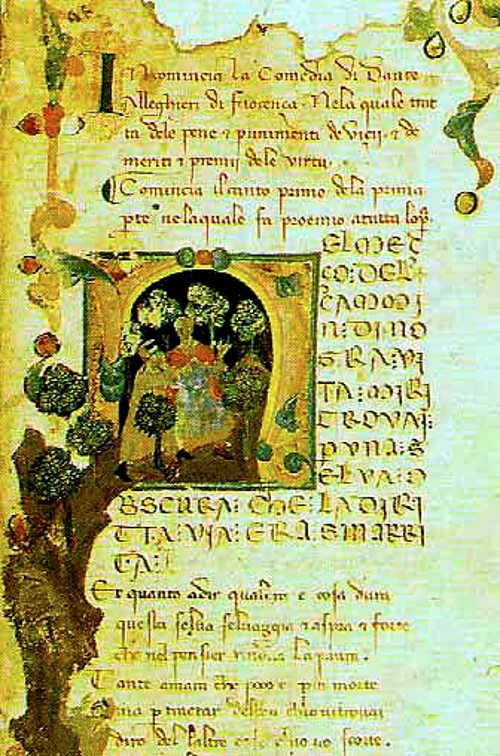 Incomincia la Comedia di Dante
Alleghieri di fiorenca. Nela quale trat
ta dele pene ⁊ punimenti de vicij ⁊ de
meriti ⁊ premij dele virtu.
Comincia il canto primo dela prima
parte nelaquale fa proemio a tutta lop̃.
NELMEÇ
ÇO: DEL:
CAMMI
N: DI NO
STRA: VI
TA: MIRI
TROVAI:
P UNA: S
ELVA: O
BSCURA: CHE: LA DIRI
TTA: VIA: ERA: SMARRI
TA:
Et quanto adir qual era e cosa dura
questa selva selvaggia ⁊ aspra ⁊ forte
che nel pensier la paura.
Tante amara che poco e piu morte
ma per tractar del ben chio vi trovai
diro del laltre cose chio vo scorte.